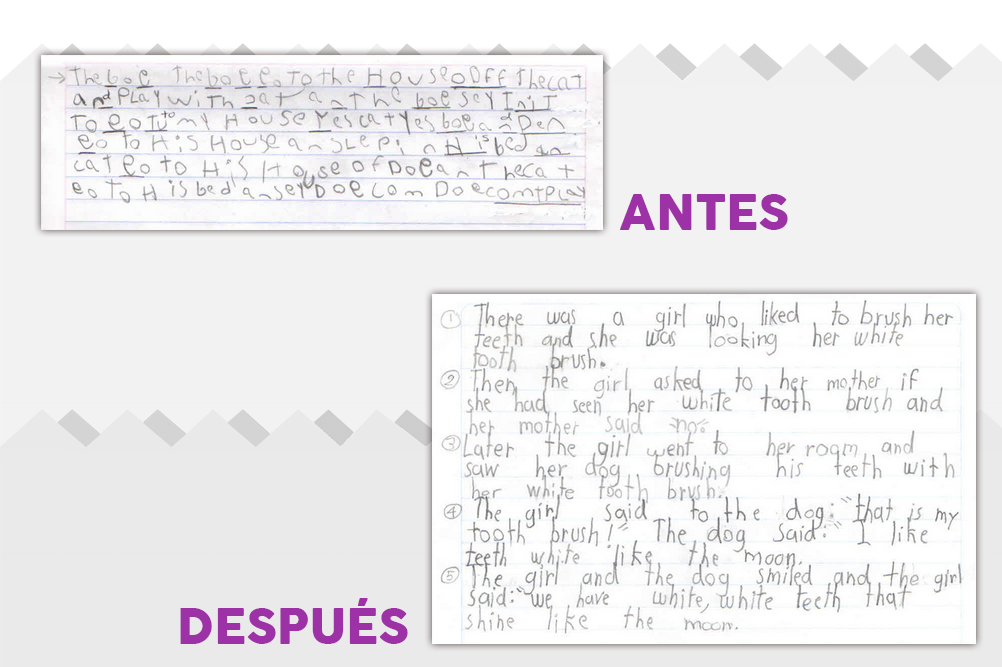 →The boe The bo e eo To the HoUSe oOff The cat
and PLAY wiTh Cat an The boe sey IniT
To eo Tu to my HoUSe Yes caT Yes boe and Den
eo To HiS HoUSe an SLep in His bed an
caT eo To HiS HoUSe oF Doe an The cat
eo To HiS bed an sey Doe com Doe comT PLay
ANTES
① There was a girl who liked to brush her
teeth and she was looking her white
tooth brush.
② Then, the girl asked to her mother if
she had seen her white tooth brush and
her mother said "no".
③ Later the girl went to her room, and
saw her dog brushing his teeth with
her white tooth brush.
④ The girl said to the dog: "that is my
tooth brush!" The dog said: " I like
teeth white like the moon.
⑤ The girl and the dog smiled and the girl
said: "we have white, white teeth that
shine like the moon.
DESPUÉS